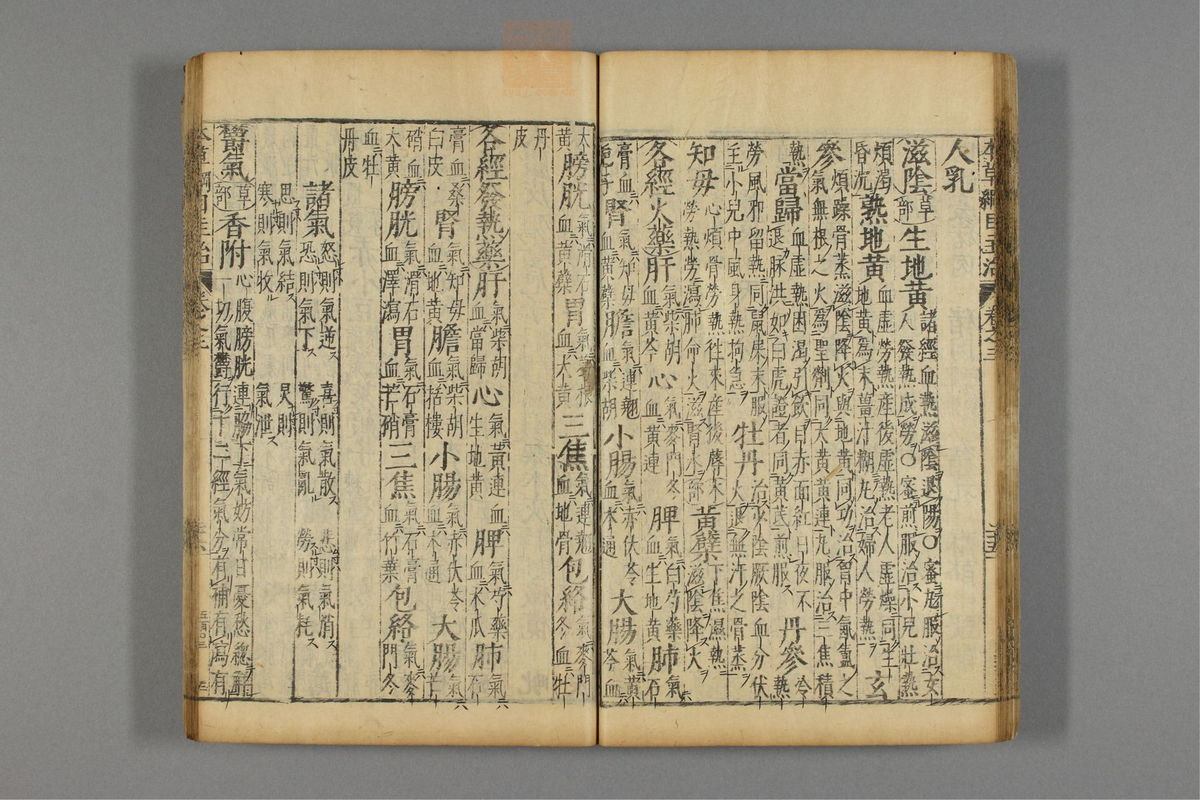 本草綱目主治 卷之三
人乳
滋陰 草部 生地黃 諸經血熱滋陰退陽○蜜丸服治女
人發熱成勞○蜜煎服治小兒壯熱
煩渴昏沉 熟地黃 血虛勞熱產後虛熱老人虛燥同生
地黃為末薑汁糊丸治婦人勞熱 玄
參 煩躁骨蒸滋陰降火與地黃同功治胃中氤氳之
氣無根之火為聖劑同大黃黃連丸服治三焦積
熱 當歸 血虛熱困渴引飲目赤面紅日夜不
退脉洪如白虎證者同黃芪煎服 丹參 冷熱
勞風邪留熱同鼠屎末服
主小兒中風身熱拘急 牡丹 治少陰厥陰血分伏
火退無汗之骨蒸
知母 心煩骨勞熱往來產後蓐
勞熱勞瀉肺命火滋腎水 木部 黃蘗 下焦濕熱
滋陰降火
各經火藥 肝 氣柴胡
血黃芩 心 氣麥門冬
血黃連 脾 氣白芍藥
血生地黃 肺 氣石
膏血 腎 氣知母
血黃蘗 膽 氣連翹
血柴胡 小腸 氣赤伏苓
血木通 大腸 氣黃
芩血
大黃 膀胱 氣滑石
血黃蘗 胃 血大黃 三焦 氣連翹
血地骨 包絡 氣麥門
冬血牡
丹皮
各經發熱藥 肝 氣柴胡
血當歸 心 氣黃連
血生地黃 脾 氣芍藥
血木瓜 肺 氣石
膏血桑
白皮 腎 氣知母
血地黃 膽 氣柴胡
血括樓 小腸 氣赤伏苓
血木通 大腸 氣芒
硝血
大黃 膀胱 氣滑石
血澤瀉 胃 氣石膏
血芒硝 三焦 氣石膏
血竹葉 包絡 氣麥
門冬
血牡
丹皮
諸氣 怒則氣逆 喜則氣散 悲則氣消
恐則氣下 驚則氣亂 勞則氣耗
思則氣結 炅則氣泄
寒則氣收
鬱氣 草部 香附 心腹膀胱連脇下氣妨常日憂愁總解
一切氣鬱行十二經氣分有補有瀉有
本草綱目主治 卷之三